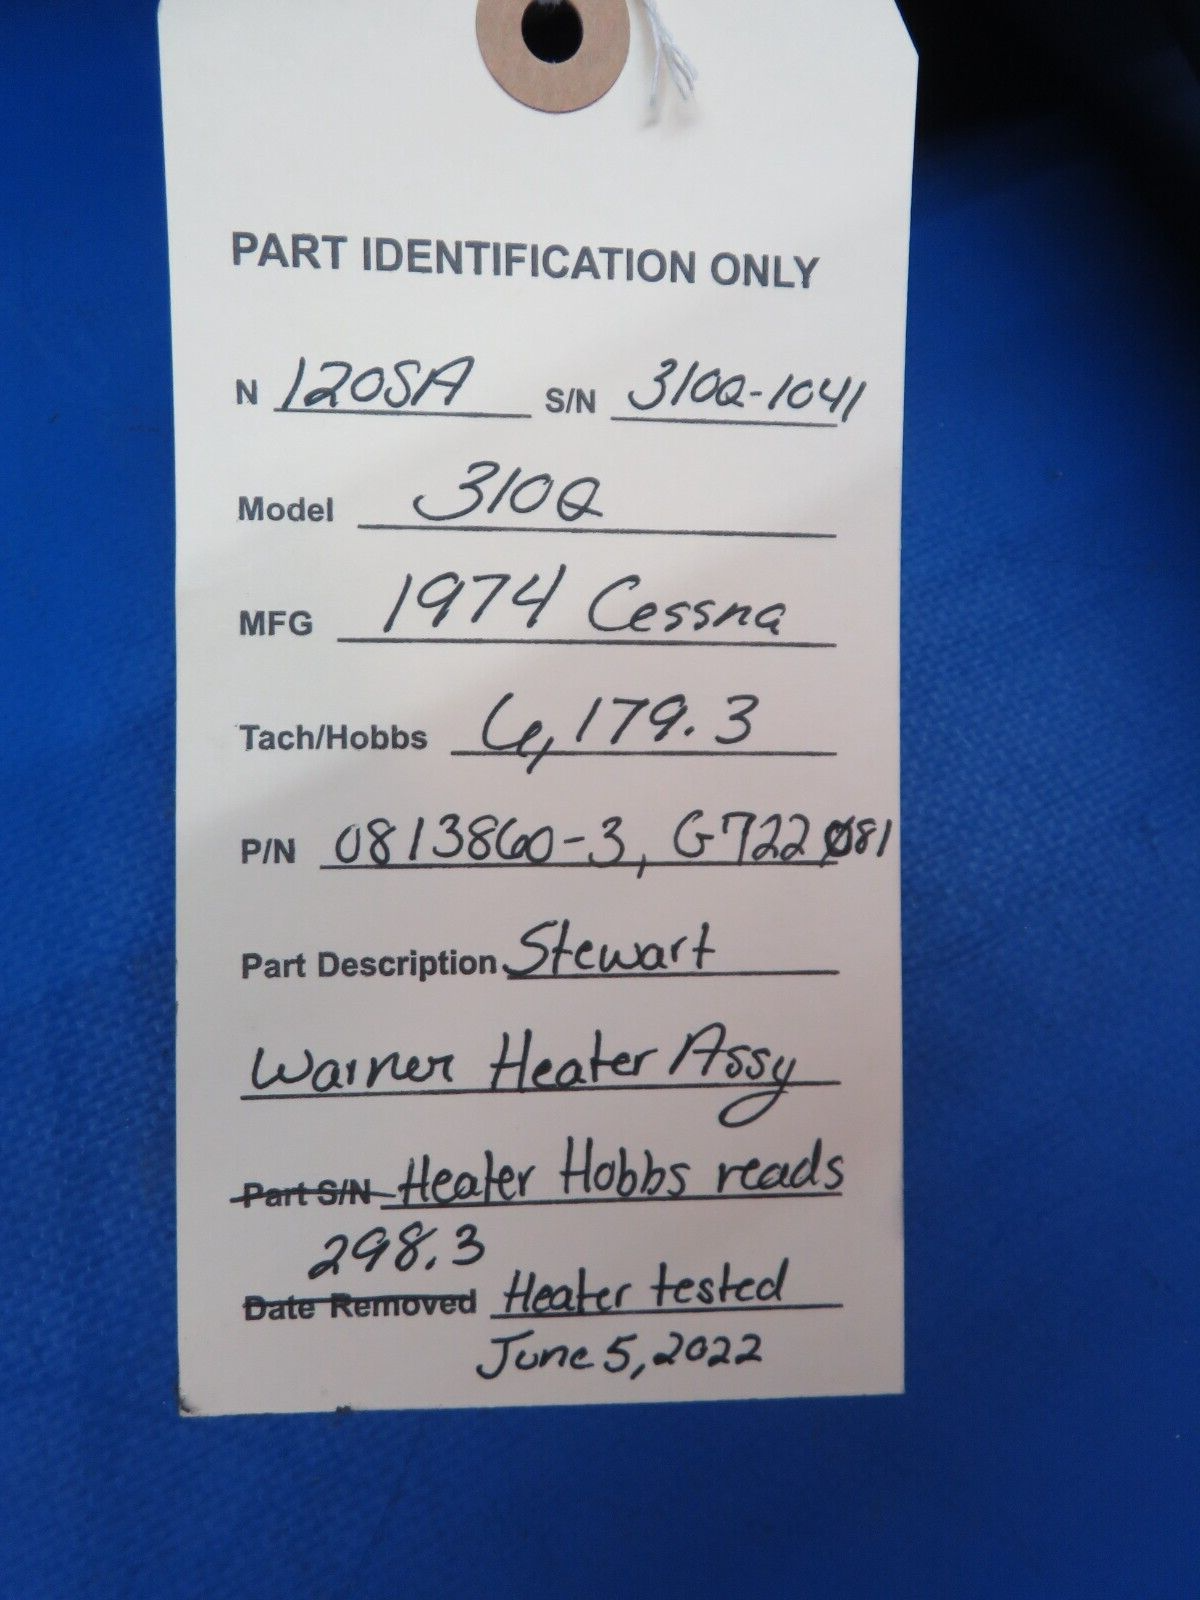 PART IDENTIFICATION ONLY
N 120SA S/N 310Q-1041
Model 310Q
MFG 1974 Cessna
Tach/Hobbs 6,179.3
P/N 0813860-3, G722 081
Part Description Stewart
Warner Heater Assy
Part S/N Heater Hobbs reads
298.3
Date Removed Heater tested
June 5, 2022